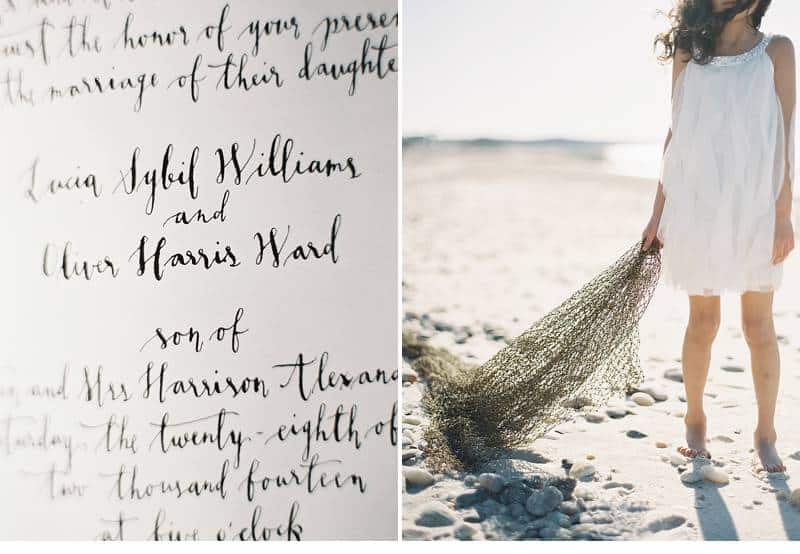 ust the honor of your presen
the marriage of their daughte
Lucia Sybil Williams
and
Oliver Harris Ward
son of
and Mrs Harrison Alexand
aturday, the twenty-eighth of
two thousand fourteen
at five o'clock